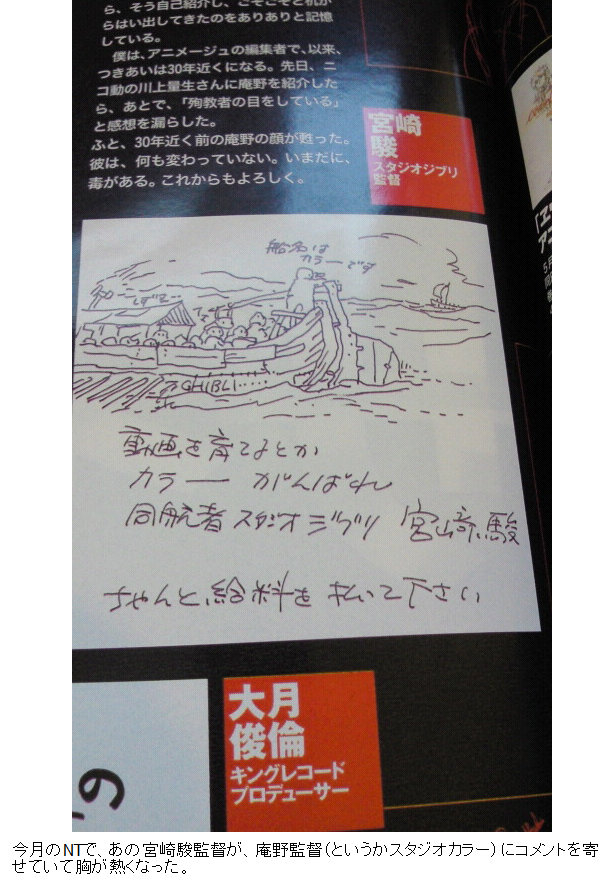 ら、そう自己紹介し、ごそごそと机か
らはい出してきたのをありありと記憶
している。
僕は、アニメージュの編集者で、以来、
つきあいは30年近くになる。先日、ニ
コ動の川上量生さんに庵野を紹介した
ら、あとで、「殉教者の目をしている」
と感想を漏らした。
ふと、30年近く前の庵野の顔が甦った。
彼は、何も変わっていない。いまだに、
毒がある。これからもよろしく。
宮崎
駿
スタジオジブリ
監督
船名は
カラーです
GHIBLI
動画を育てるとか
カラー がんばれ
同航者 スタジオジブリ 宮崎駿
ちゃんと給料を払って下さい
大月
俊倫
キングレコード
プロデューサー
の
今月のNTで、あの宮崎駿監督が、庵野監督(というかスタジオカラー)にコメントを寄
せていて胸が熱くなった。